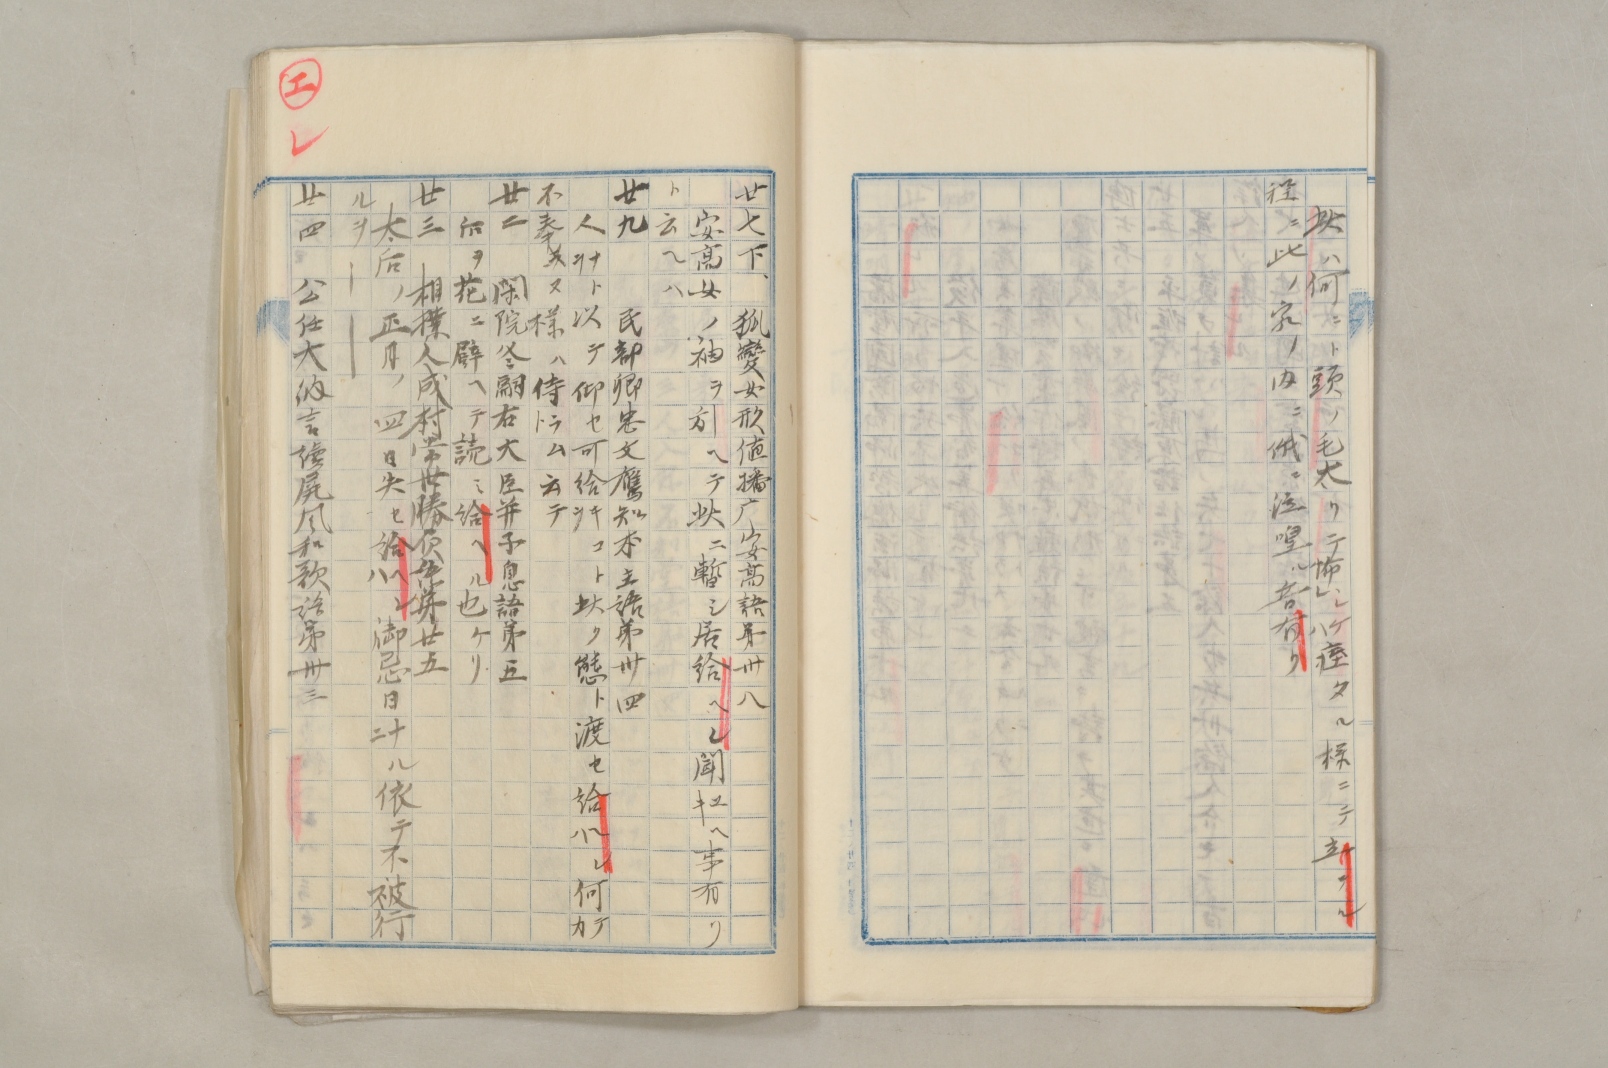 此ハ何ニト頭ノ毛太リテ怖シケハ痓タル様ニテ立テル
程ニ此ノ家ノ内ニ俄ニ泣喤ル音有リ
㋓レ
廿七下、狐變女形値播广安高語第卅八
安高女ノ袖ヲ引ヘテ此ニ暫シ居給ヘレ聞キユヘ事有リ
ト云ヘハ
廿九 民部卿忠文鷹知本主語第卅四
人ナ以テ仰セ可給キコト此ク態ト渡セ給ヘレハ何カテ
不奉ヌ様ハ侍ラムト云テ
廿二 閑院冬嗣右大臣并子息語第五
ヲ花ニ譬ヘテ読ミ給ヘル也ケリ
廿三 相撲人成村常世勝負語第廿五
太后ノ正月ノ四日失セ給ヘレハ御忌日ニナル依テ不被行
ルヲ――
廿四 公任大納言讀屏風和歌語第卅三